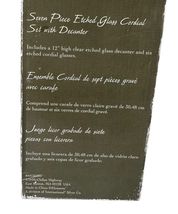 Seven Piece Etched Glass Cordial
Set with Decanter
Includes a 12" high clear etched glass decanter and six
etched cordial glasses.
Ensemble Cordial de sept pièces gravé
avec carafe
Comprend une carafe de verre claire gravé de 30,48 cm
de hauteur et six verres de cordial gravé.
Juego licor grabado de siete
piezas con licorera
Incluye una licorera de 30,48 cm de alto de vidrio claro
grabado y seis copas de licor grabado.
Highway
Made in China
International Silver Co.